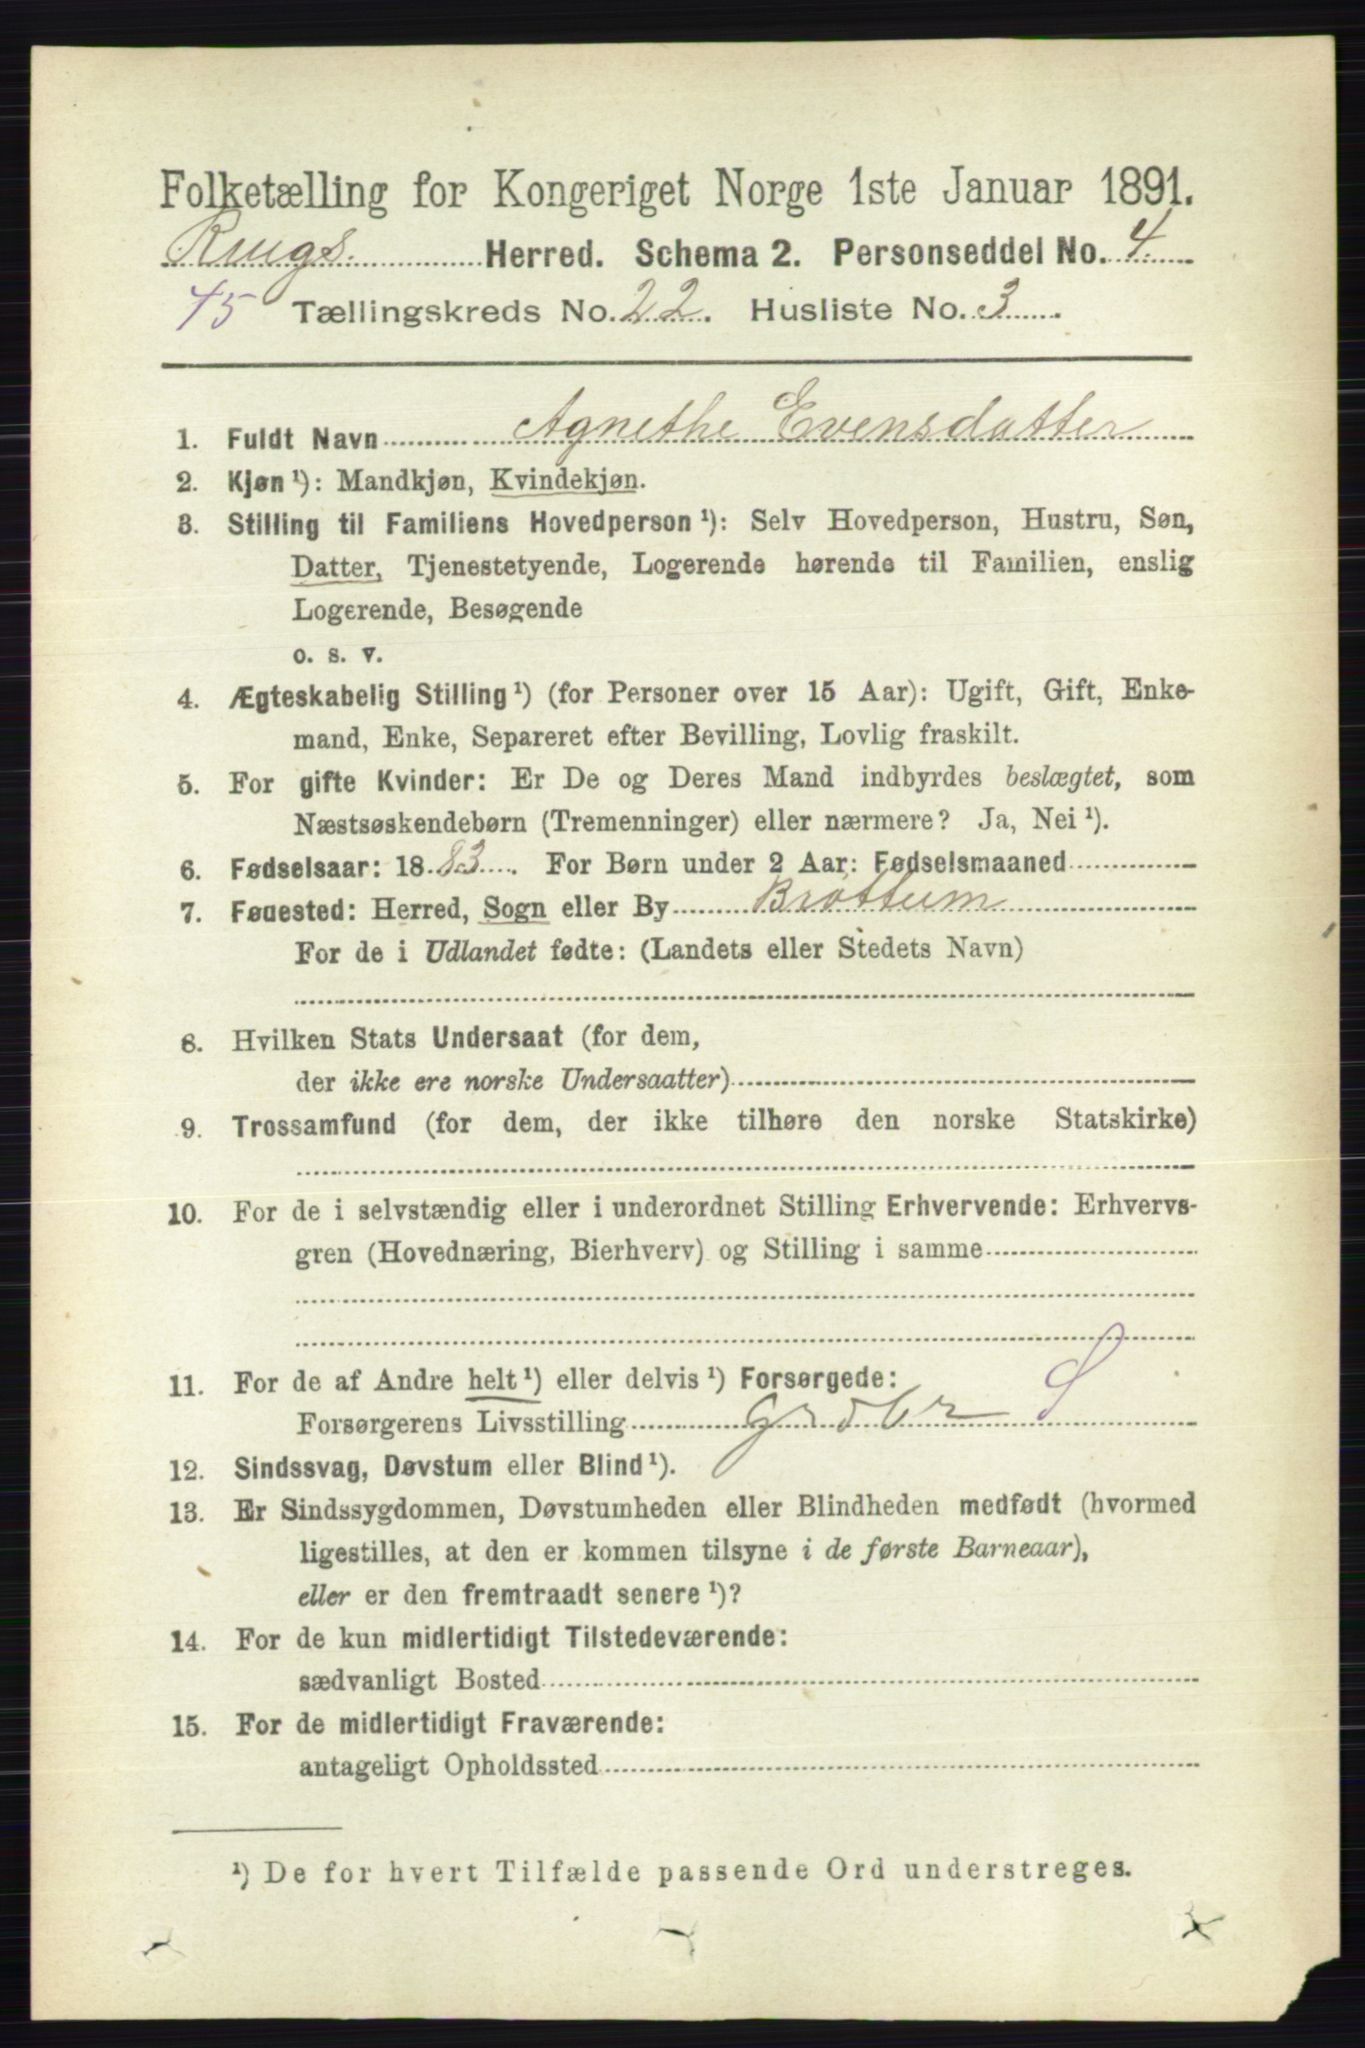 Folketælling for Kongeriget Norge 1ste Januar 1891.
Rings. Herred. Schema 2. Personseddel No. 4.
45 Tællingskreds No. 22. Husliste No. 3
1. Fuldt Navn Agnethe Evensdatter
2. Kjøn ¹): Mandkjøn, Kvindekjøn.
3. Stilling til Familiens Hovedperson ¹): Selv Hovedperson, Hustru, Søn,
Datter, Tjenestetyende, Logerende hørende til Familien, enslig
Logerende, Besøgende
o. s. v.
4. Ægteskabelig Stilling ¹) (for Personer over 15 Aar): Ugift, Gift, Enke-
mand, Enke, Separeret efter Bevilling, Lovlig fraskilt.
5. For gifte Kvinder: Er De og Deres Mand indbyrdes beslægtet, som
Næstsøskendebørn (Tremenninger) eller nærmere? Ja, Nei ¹).
6. Fødselsaar: 1883. For Børn under 2 Aar: Fødselsmaaned
7. Fødested: Herred, Sogn eller By Brøttum
For de i Udlandet fødte: (Landets eller Stedets Navn)
8. Hvilken Stats Undersaat (for dem,
der ikke ere norske Undersaatter)
9. Trossamfund (for dem, der ikke tilhøre den norske Statskirke)
10. For de i selvstændig eller i underordnet Stilling Erhvervende: Erhvervs-
gren (Hovednæring, Bierhverv) og Stilling i samme
11. For de af Andre helt ¹) eller delvis ¹) Forsørgede:
Forsørgerens Livsstilling
12. Sindssvag, Døvstum eller Blind ¹).
13. Er Sindssygdommen, Døvstumheden eller Blindheden medfødt (hvormed
ligestilles, at den er kommen tilsyne i de første Barneaar),
eller er den fremtraadt senere ¹)?
14. For de kun midlertidigt Tilstedeværende:
sædvanligt Bosted
15. For de midlertidigt Fraværende:
antageligt Opholdssted
¹) De for hvert Tilfælde passende Ord understreges.